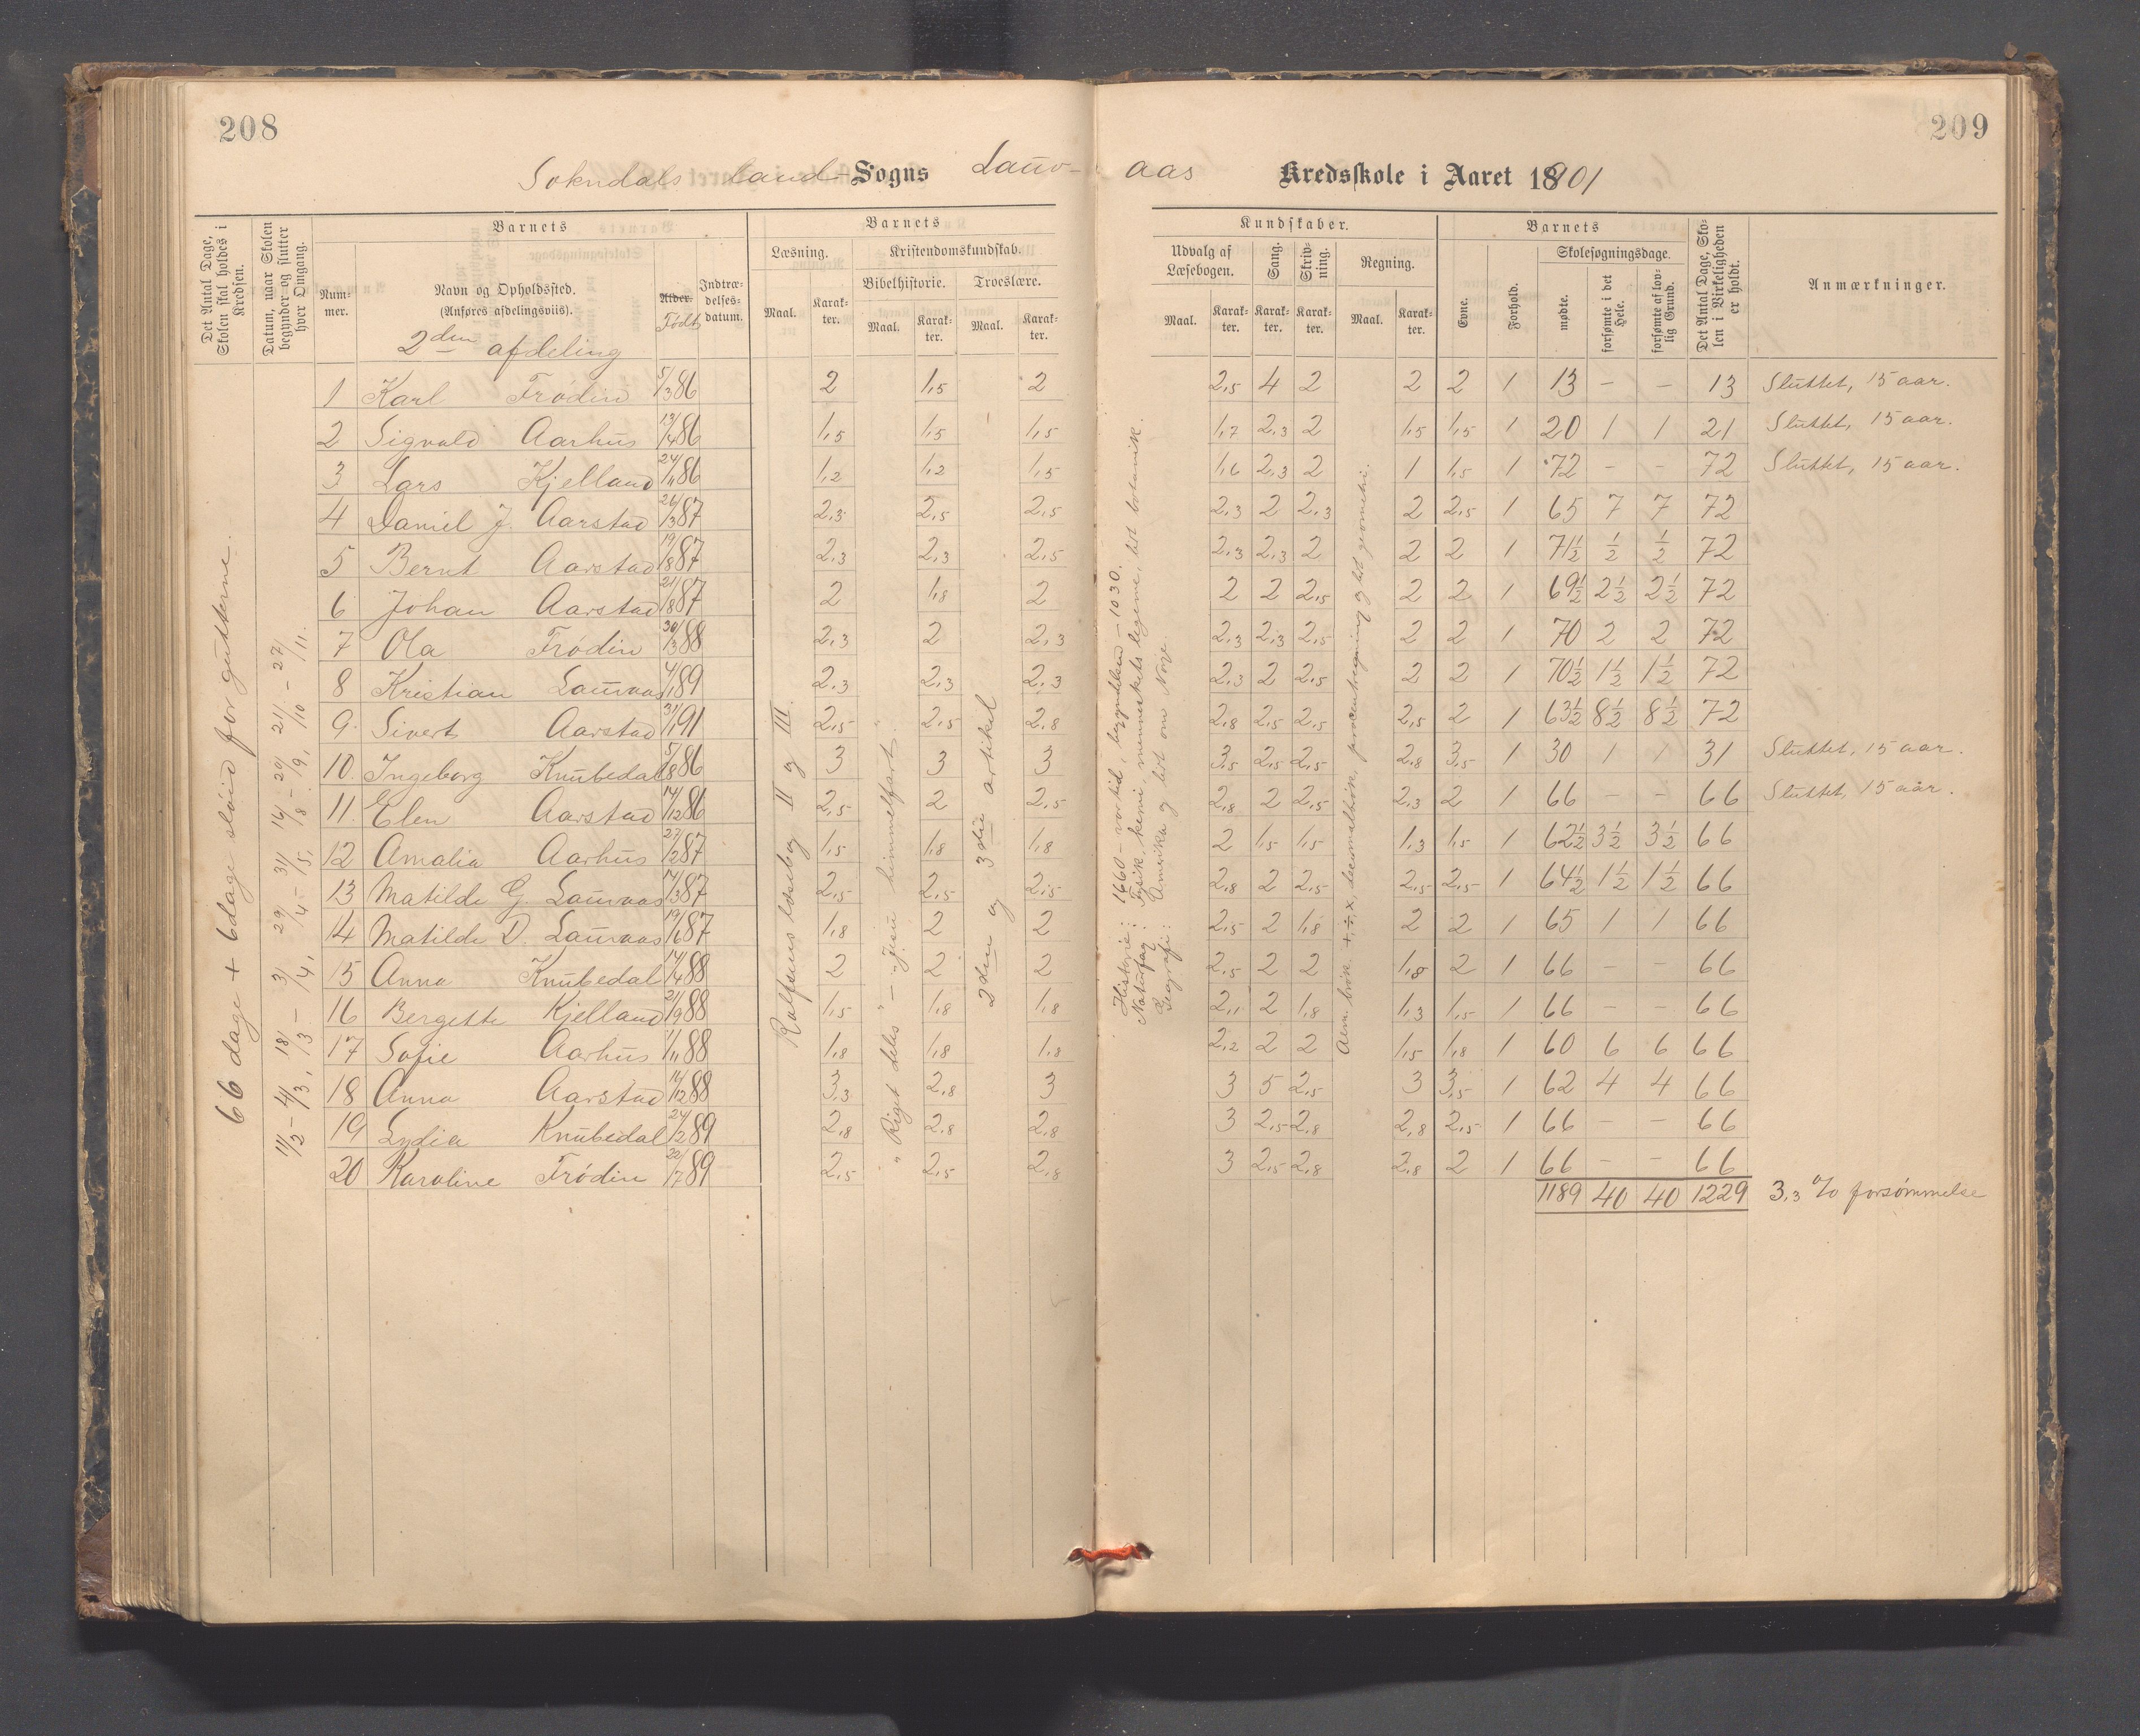 208
209
Sokndals Land- Sogns Lauv-aas Kredsskole i Aaret 1901
Det Antal Dage, Skolen skal holdes i Kredsen.
Datum, naar Skolen begynder og slutter hver Omgang.
Barnets
Nummer.
Navn og Opholdssted.
(Anføres afdelingsviis).
2den afdeling
Alder. Født
Indtrædelsesdatum.
Barnets
Læsning.
Maal.
Karakter.
Kristendomskundskab.
Bibelhistorie.
Maal.
Karakter.
Troeslære.
Maal.
Karakter.
Kundskaber.
Udvalg af Læsebogen.
Maal.
Karakter.
Sang.
Karakter.
Skrivning.
Karakter.
Regning.
Maal.
Karakter.
Barnets
Evne.
Forhold.
Skolesøgningsdage.
mødte.
forsømte i det Hele.
forsømte af lovlig Grund.
Det Antal Dage, Skolen i Virkeligheden er holdt.
Anmærkninger.
66 dage + 6 dage sløid for gutterne.
11/2 - 4/3, 18/3 - 3/4, 29/4 - 31/5, 14/8 - 20/9, 21/10 - 27/11.
Rolfsens læsebog II og III.
"Riget deles" - "Jesu himmelfart".
2den og 3die artikel
Historie: 1660 - vor tid, begyndelsen - 1030.
Naturfag: Fysik, kemi, menneskets legeme, lidt botanik.
Geografi: Amerika og lidt om Norge.
Alm. brøk. +, ÷, x, decimalbrøk, procentregning og lidt geometri.
1 Karl Frødin 5/3 86 2 1,5 2 2,5 4 2 2 2 1 13 - - 13 Sluttet, 15 aar.
2 Sigvald Aarhus 13/4 86 1,5 1,5 1,5 1,7 2,3 2 1,5 1,5 1 20 1 1 21 Sluttet, 15 aar.
3 Lars Kjelland 24/11 86 1,2 1,2 1,5 1,6 2,3 2 1 1,5 1 72 - - 72 Sluttet, 15 aar.
4 Daniel J. Aarstad 26/3 87 2,3 2,5 2,5 2,3 2 2,3 2 2,5 1 65 7 7 72
5 Bernt Aarstad 19/8 87 2,3 2,3 2,5 2,3 2,3 2 2 2 1 71½ ½ ½ 72
6 Johan Aarstad 21/8 87 2 1,8 2 2 2 2,5 2 2 1 69½ 2½ 2½ 72
7 Ola Frødin 30/3 88 2,3 2 2,3 2,3 2,3 2,5 2 2 1 70 2 2 72
8 Kristian Lauvaas 4/1 89 2,3 2,3 2,3 2,3 2 2,5 2 2 1 70½ 1½ 1½ 72
9. Sivert Aarstad 31/1 91 2,5 2,5 2,8 2,8 2,5 2,5 2,5 2 1 63½ 8½ 8½ 72
10. Ingeborg Knubedal 5/8 86 3 3 3 3,5 2,5 2,5 2,8 3,5 1 30 1 1 31 Sluttet, 15 aar.
11. Elen Aarstad 14/12 86 2,5 2 2,5 2,8 2 2,5 2,3 2 1 66 - - 66 Sluttet, 15 aar.
12 Amalia Aarhus 27/2 87 1,5 1,8 1,8 2 1,5 1,5 1,3 1,5 1 62½ 3½ 3½ 66
13 Matilde G. Lauvaas 14/3 87 2,5 2,5 2,5 2,8 2 2,5 2,5 2,5 1 64½ 1½ 1½ 66
14 Matilde D. Lauvaas 19/6 87 1,8 2 2 2,5 2 1,8 2 2 1 65 1 1 66
15 Anna Knubedal 14/4 88 2 2 2 2,5 2 2 1,8 2 1 66 - - 66
16 Bergitte Kjelland 21/9 88 1,5 1,8 1,8 2,1 2 1,8 1,3 1,5 1 66 - - 66
17 Sofie Aarhus 1/11 88 1,8 1,8 1,8 2,2 2 2 1,5 1,8 1 60 6 6 66
18 Anna Aarstad 16/12 88 3,3 2,8 3 3 5 2,5 3 3,5 1 62 4 4 66
19 Lydia Knubedal 24/2 89 2,8 2,8 2,8 3 2,5 2,8 2,8 2,5 1 66 - - 66
20 Karoline Frødin 22/7 89 2,5 2,5 2,8 3 2,5 2,8 2,8 2 1 66 - - 66
1189 40 40 1229 3,3 % forsømmelse